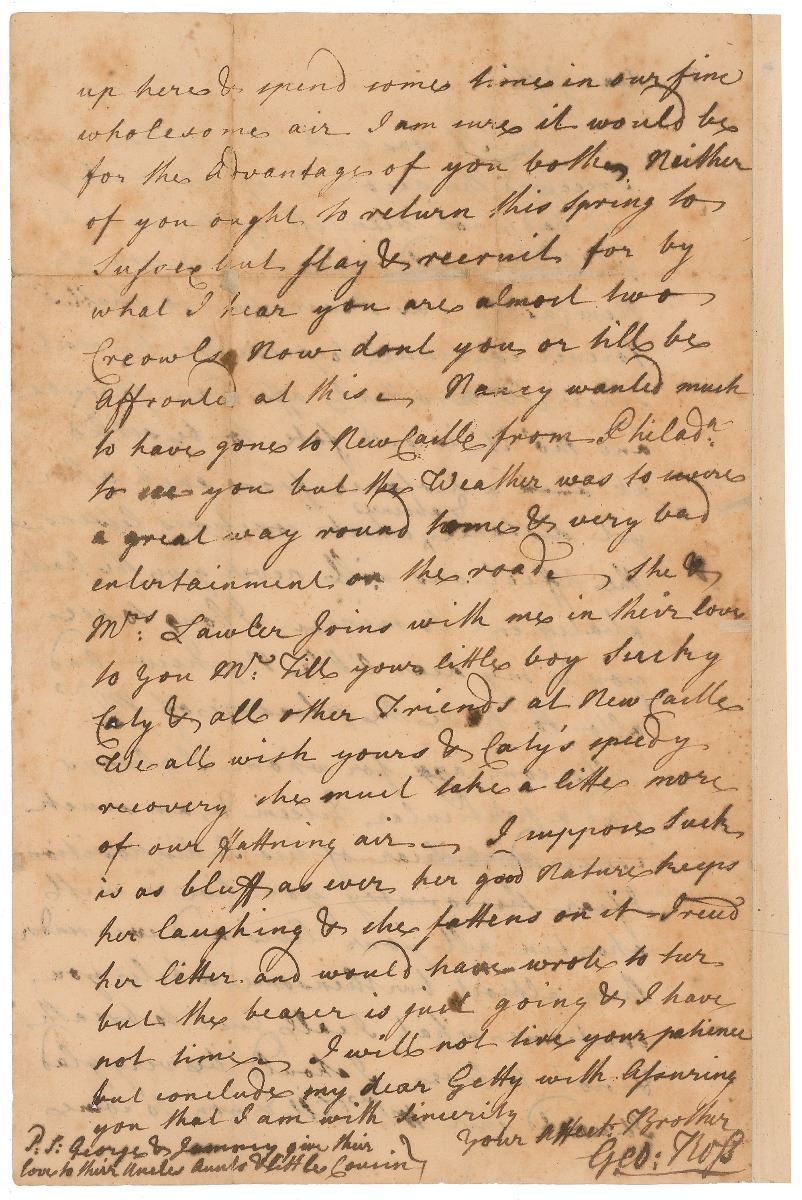 up here & spend some time in our fine
wholesome air I am sure it would be
for the advantage of you bothe, Neither
of you ought to return this Spring to
Sussex but stay & recruit for by
what I hear you are almost two
Creowls Now dont you or till be
Affronted at this Nancy wanted much
to have gone to New Castle from Philada.
to see you but the Weather was to
a great way round home & very bad
entertainment on the road She &
Mrs. Lawler Joins with me in their love
to You Mr. Till your little boy Sucky
Caty & all other Friends at New Castle
We all wish yours & Caty's speedy
recovery she must take a little more
of our fattning air I suppose Suck
is as bluff as ever her good Nature keeps
her laughing & she fattens on it I recd
her letter and would have wrote to
but the bearer is just going & I have
not time I will not tire your patience
but conclude my dear Getty with Assuring
you that I am with sincerity
Your Affect. Brother
Geo: Ross
P: S: George & Jammey give their
love to their Uncles Aunts & little Cousin